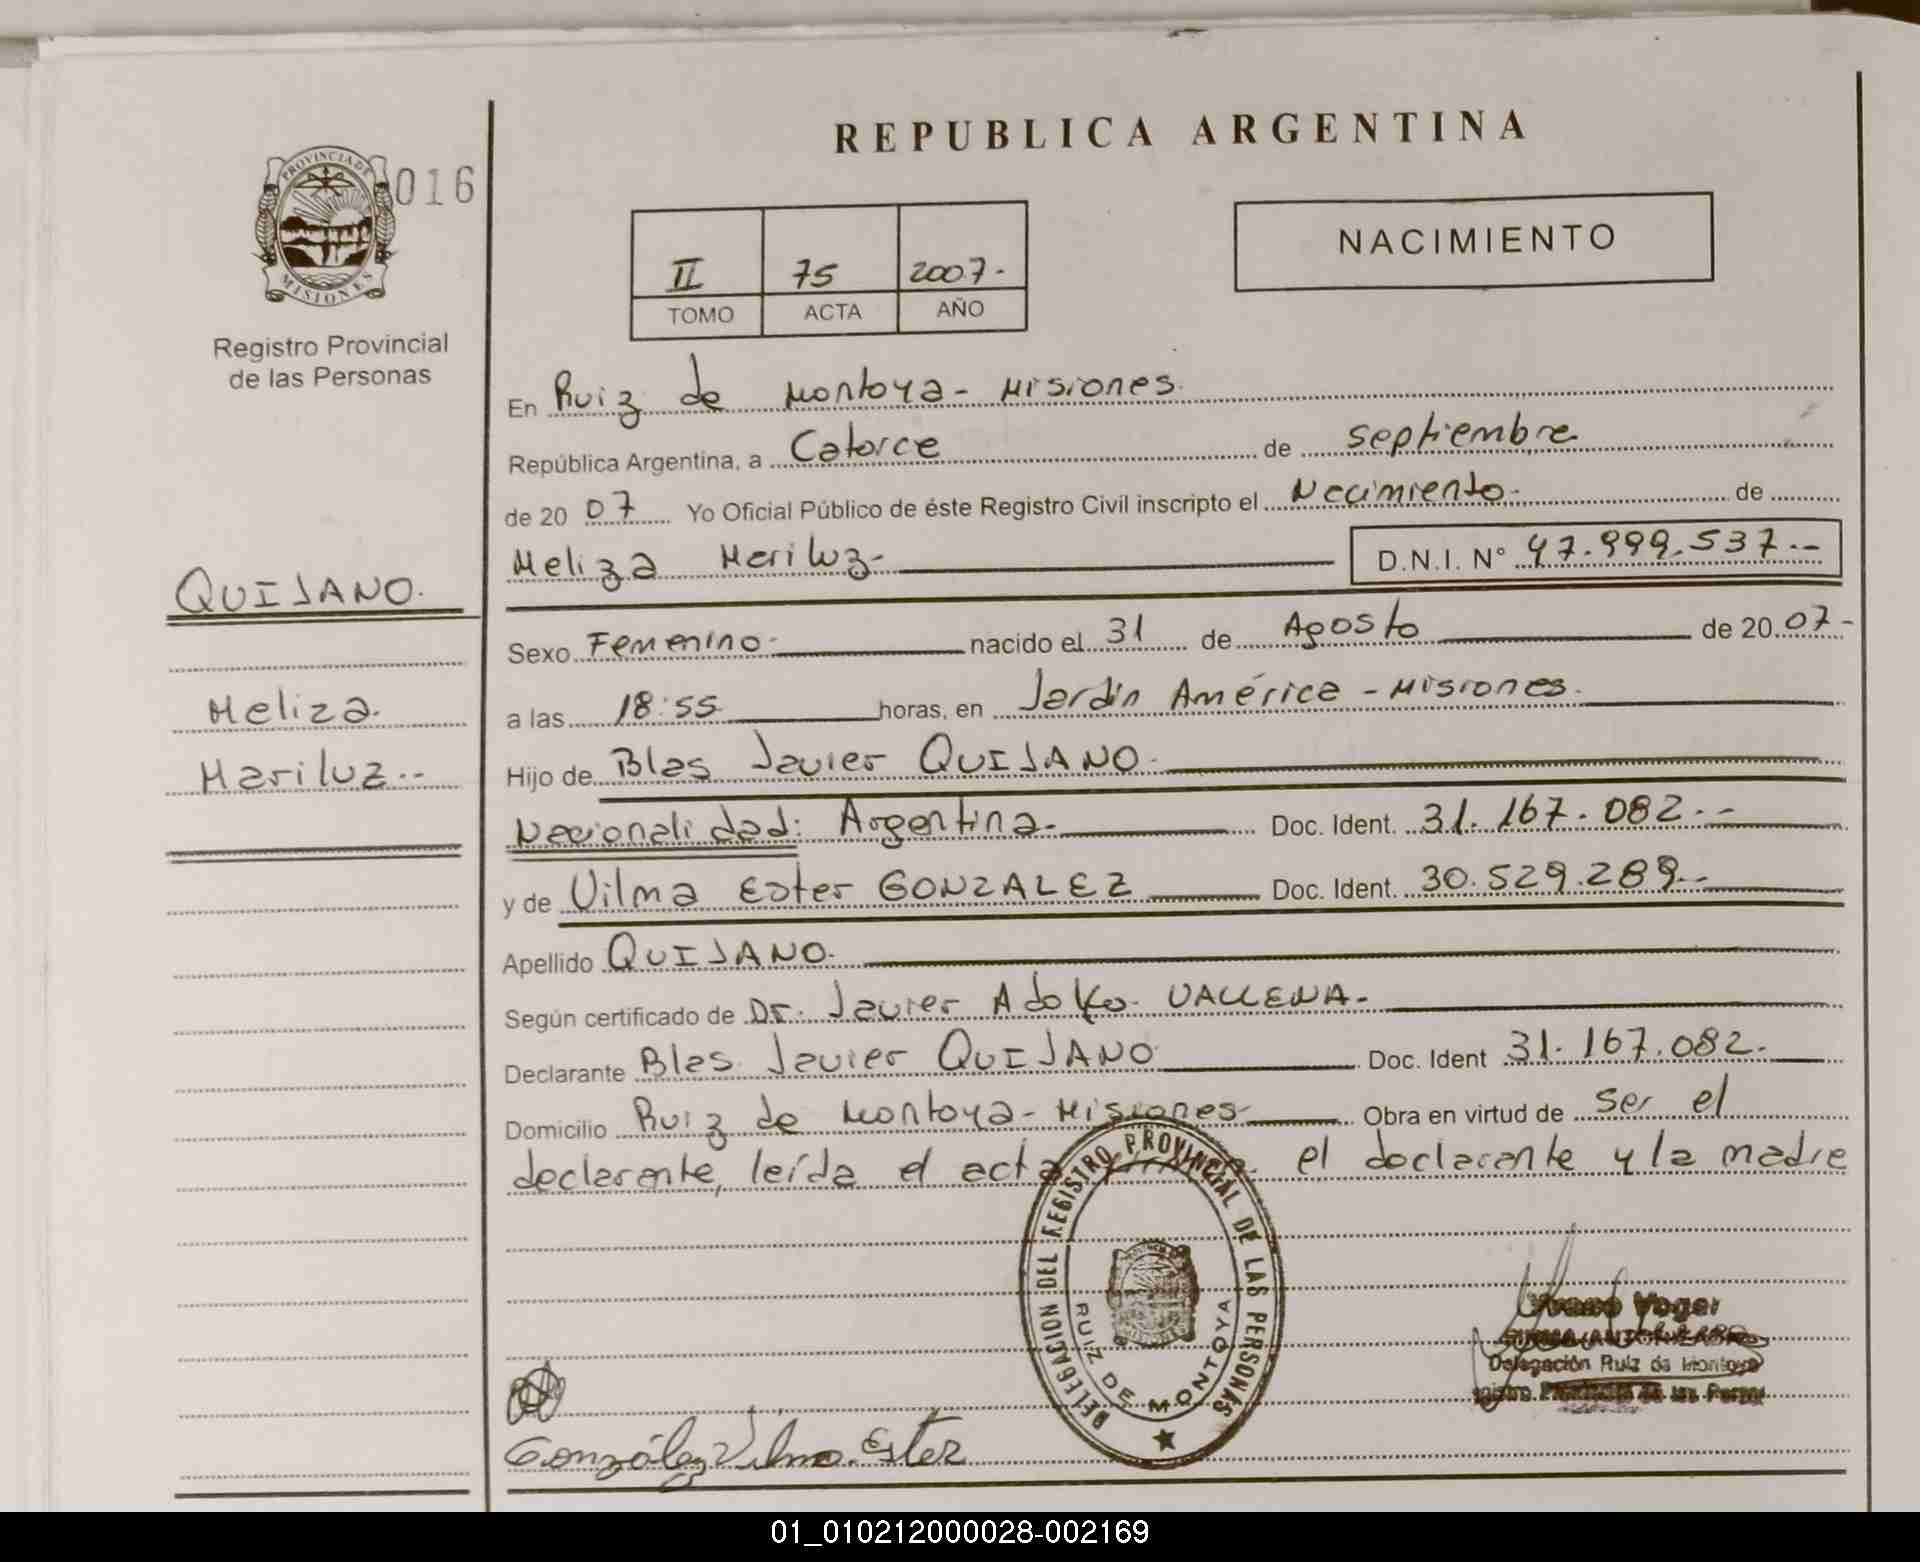 REPUBLICA ARGENTINA
PROVINCIA DE
MISIONES
016
Registro Provincial
de las Personas
II 75 2007.-
TOMO ACTA AÑO
NACIMIENTO
En Ruiz de Montoya - Misiones.
República Argentina, a Catorce de septiembre
de 20 07 Yo Oficial Público de éste Registro Civil inscripto el Nacimiento- de
Meliza Mariluz- D.N.I. N° 47.999.537.--
QUIJANO.
Meliza.
Mariluz.--
Sexo Femenino- nacido el 31 de Agosto de 20 07-
a las 18:55 horas, en Jardín América - Misiones.
Hijo de Blas Javier QUIJANO-
Nacionalidad: Argentina- Doc. Ident. 31.167.082.--
y de Vilma Ester GONZALEZ Doc. Ident. 30.529.289.--
Apellido QUIJANO-
Según certificado de Dr. Javier Adolfo VALLENA.-
Declarante Blas Javier QUIJANO Doc. Ident 31.167.082.-
Domicilio Ruiz de Montoya - Misiones- Obra en virtud de ser el
declarante, leída el acta el declarante y la madre
DELEGACION DEL REGISTRO PROVINCIAL DE LAS PERSONAS
RUIZ DE MONTOYA
Delegación Ruiz de Montoya
González Vilma Ester
01_010212000028-002169